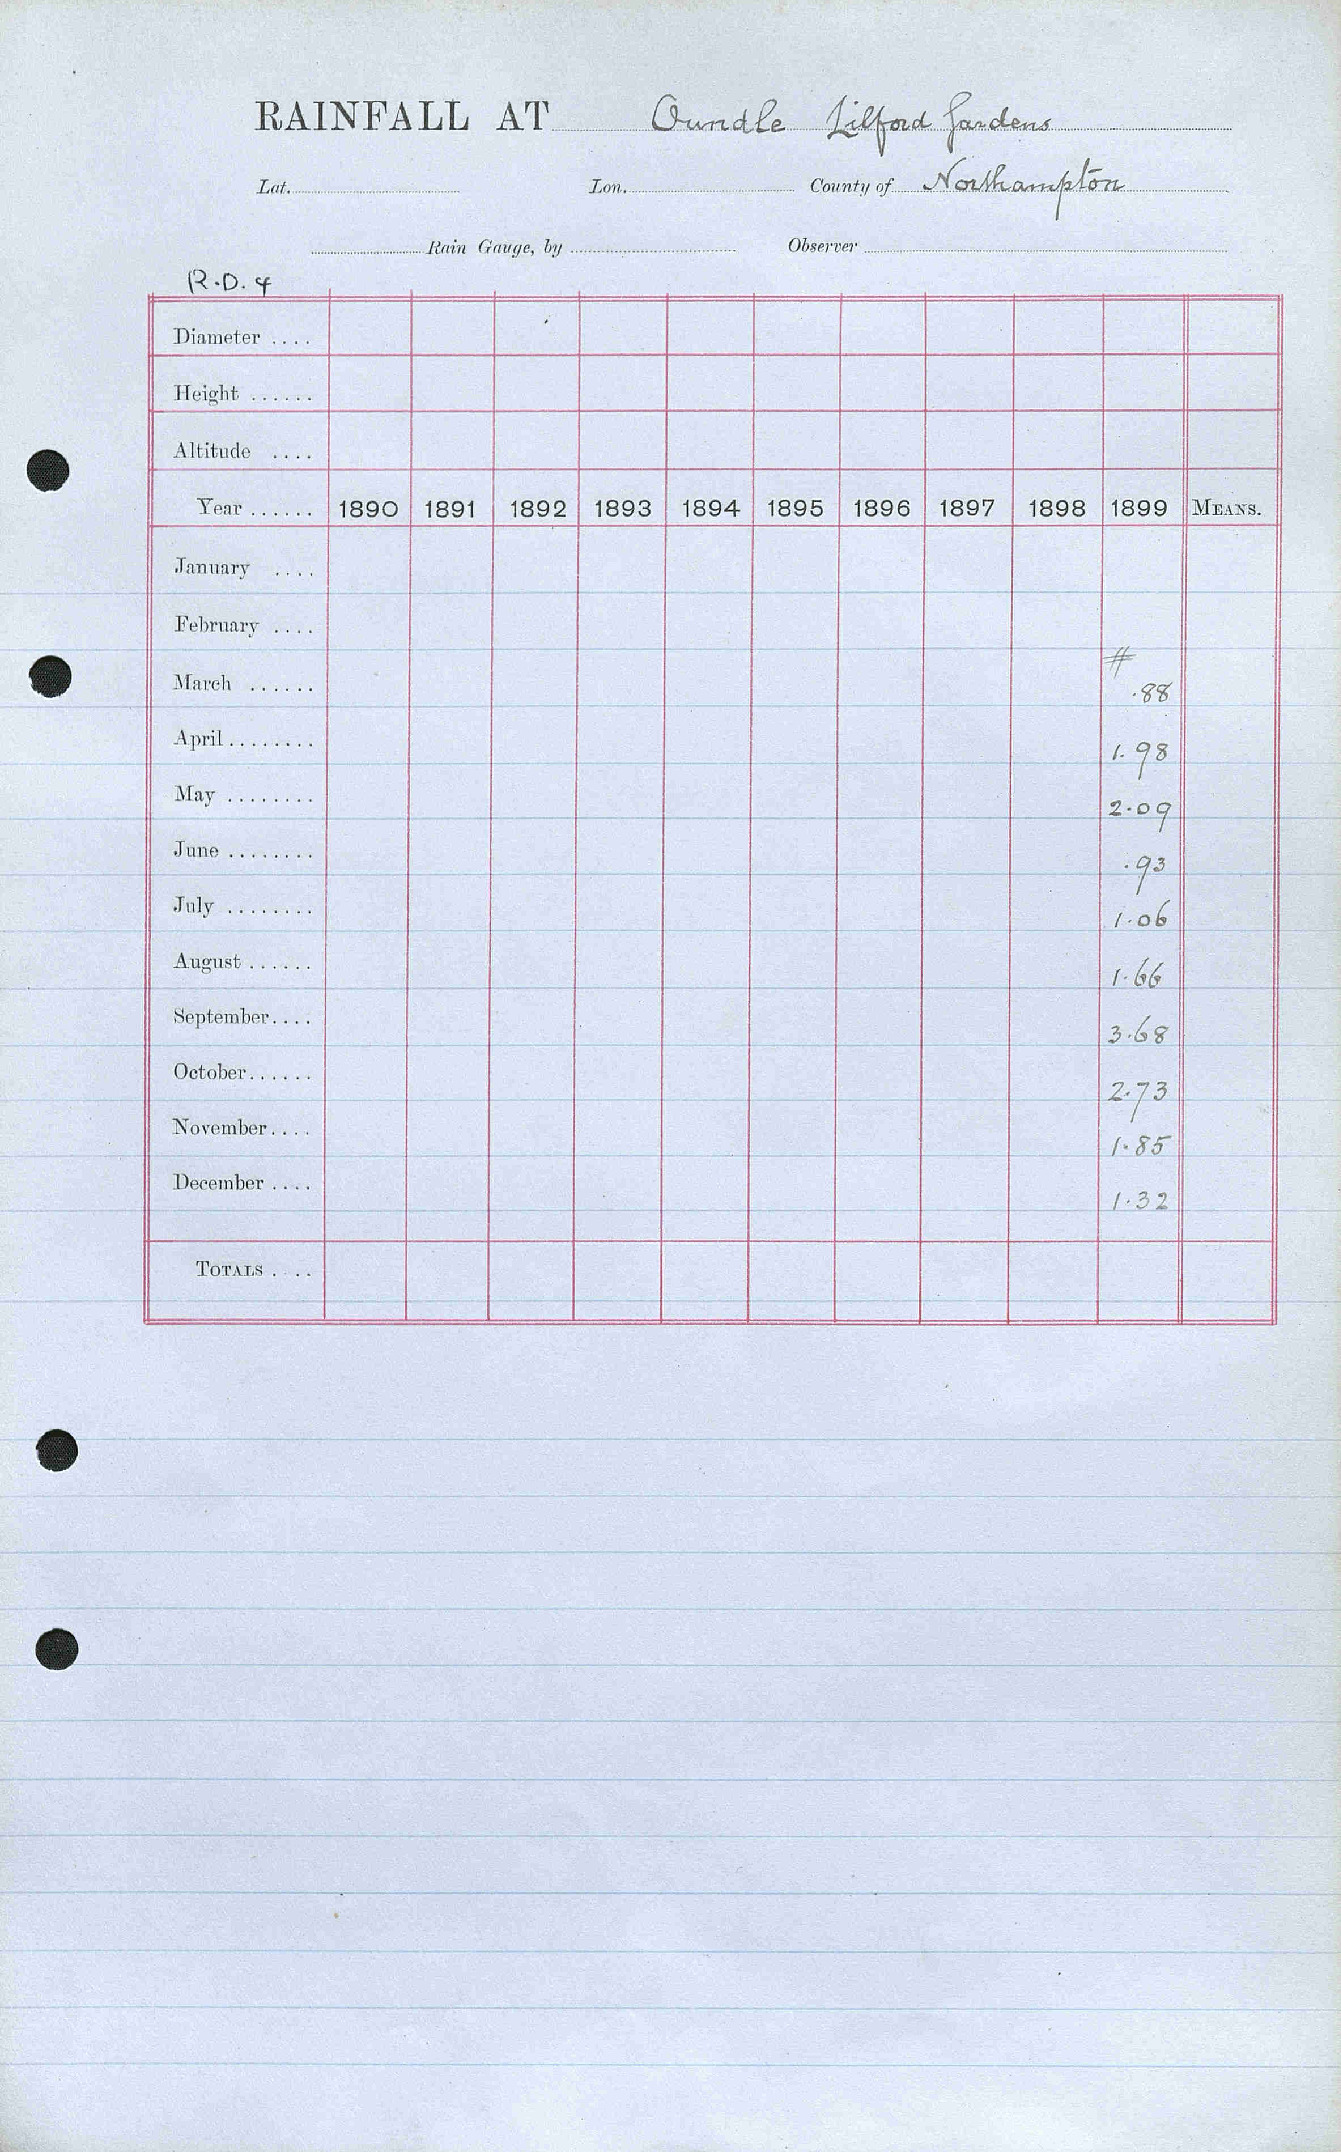 RAINFALL AT Oundle Lilford Gardens
Lat. Lon. County of Northampton
Rain Gauge, by Observer
R.D. 4
Diameter ....
Height ......
Altitude ....
Year ...... 1890 1891 1892 1893 1894 1895 1896 1897 1898 1899 MEANS.
January ....
February ....
March ...... # .88
April ........ 1.98
May ........ 2.09
June ........ .93
July ........ 1.06
August ...... 1.66
September.... 3.68
October...... 2.73
November.... 1.85
December .... 1.32
TOTALS ....